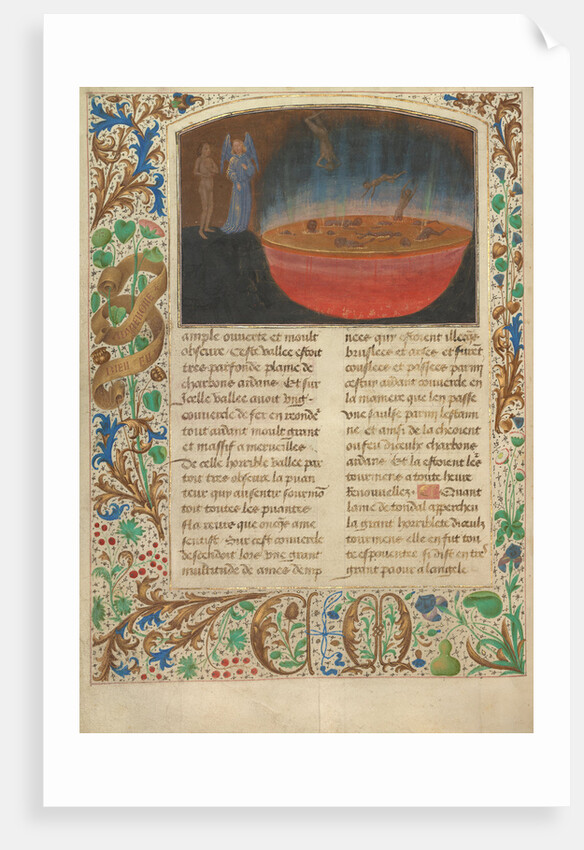 ample ouuerte et moult
obscure Ceste vallee estoit
tres parfonde plaine de
charbons ardans Et sur
Icelle vallee auoit vng
couuercle de fer en ronde
tout ardant moult grant
et massif a merueilles
De celle horrible vallee par
tout tres obscure la puan
teur quy ausentir sourmo
toit toutes les puantes
flareurs que oncqs ame
sentist Sur cest couuercle
descendoit lors vne grant
multitude de ames demp
nees quy estoient illecqs
bruslees et arses et furet
coulees et passees parmi
cestui ardant couuercle en
la maniere que len passe
vne saulse parmi lestami
ne et ainsi de la cheoient
ou feu diceulx charbons
ardans Et la estoient les
tourmens a toute heure
Renouuellez Quant
lame de tondal appercheu
la grant horriblete diceulx
tourmens elle en fut tou
te espouentee si dist en tres
grant paour a langele